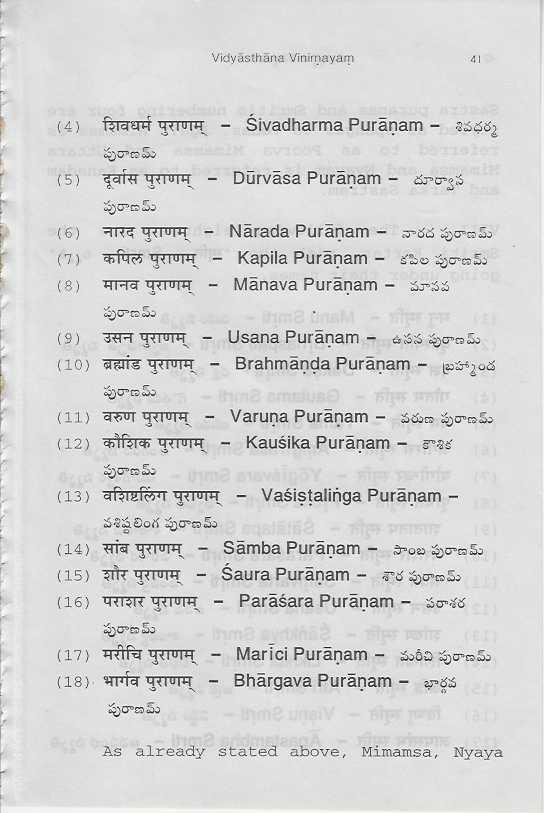 Vidyāsthāna Vinimayam 41
(4) शिवधर्म पुराणम् – Śivadharma Purāṇam – శివధర్మ
పురాణమ్
(5) दूर्वास पुराणम् – Dūrvāsa Purāṇam – దూర్వాస
పురాణమ్
(6) नारद पुराणम् – Nārada Purāṇam – నారద పురాణమ్
(7) कपिल पुराणम् – Kapila Purāṇam – కపిల పురాణమ్
(8) मानव पुराणम् – Mānava Purāṇam – మానవ
పురాణమ్
(9) उसन पुराणम् – Usana Purāṇam – ఉసన పురాణమ్
(10) ब्रह्मांड पुराणम् – Brahmāṇḍa Purāṇam – బ్రహ్మాండ
పురాణమ్
(11) वरुण पुराणम् – Varuṇa Purāṇam – వరుణ పురాణమ్
(12) कौशिक पुराणम् – Kauśika Purāṇam – కౌశిక
పురాణమ్
(13) वशिष्टलिंग पुराणम् – Vaśiṣṭaliṅga Purāṇam –
వశిష్ఠలింగ పురాణమ్
(14) सांब पुराणम् – Sāmba Purāṇam – సాంబ పురాణమ్
(15) शौर पुराणम् – Śaura Purāṇam – శౌర పురాణమ్
(16) पराशर पुराणम् – Parāśara Purāṇam – పరాశర
పురాణమ్
(17) मरीचि पुराणम् – Marīci Purāṇam – మరీచి పురాణమ్
(18) भार्गव पुराणम् – Bhārgava Purāṇam – భార్గవ
పురాణమ్
As already stated above, Mimamsa, Nyaya